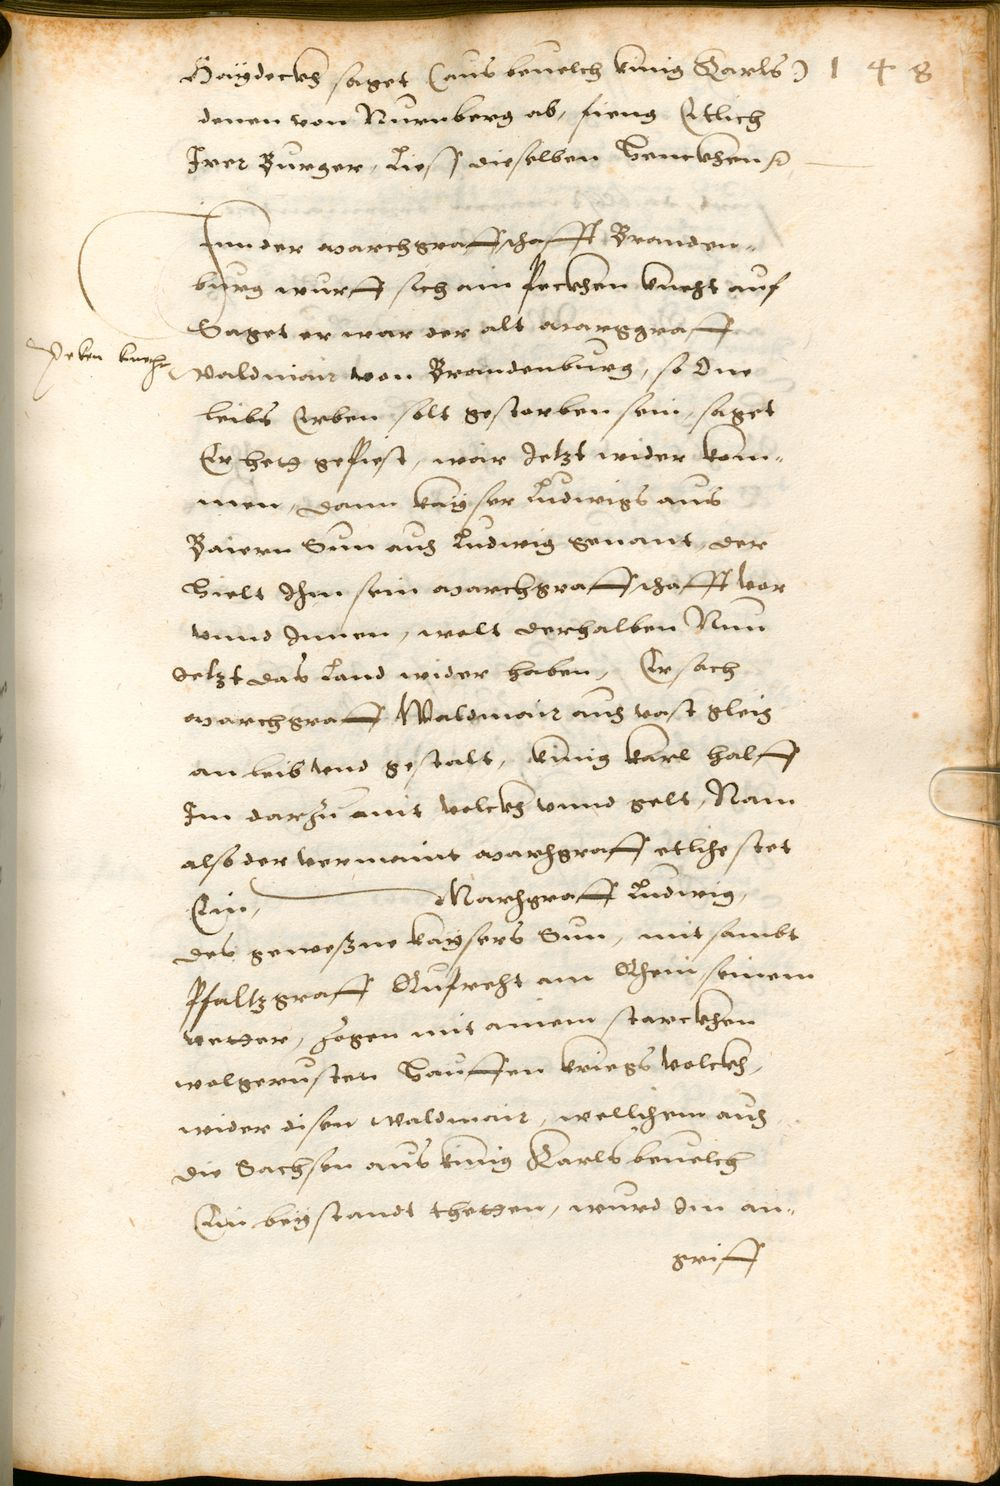 Haydeckh saget (aus beuelch künig Karls) 148
denen von Nurnberg ab, fieng Etlich
Irer Burger, Liess dieselben Henckhen
Inn der marchgraffschafft Branden-
burg wurff sich ain peckhen knecht auf
Saget er war der alt marggraff
peken knecht
Waldmair von Brandenburg, so One
leibs Erben solt gestorben sein, saget
Er hett gepiest, wär Jetzt wider kom-
men, dann kayser Ludwigs aus
Baiern Sun auch Ludwig genant, der
Hielt Ihm sein marchgraffschafft vor
vnnd Innen, wolt derhalben Nun
Jetzt das Land wider haben, Er sach
marchgraff Waldmair auch vast gleich
an leib vnd gestalt, künig Karl halff
Im darzu mit volckh vnnd gelt, Nam
also der vermaint marchgraff etliche stet
Ein, Marchgraff Ludwig,
des gewessne kaysers Sun, mit sambt
Pfaltzgraff Ruprecht am Rhein seinem
vetter, zogen mit ainem starckhen
wolgerusten Hauffen kriegs volckh,
wider disen waldmair, wellichem auch
die Sachsen aus künig Karls beuelch
Ein beystandt thetten, wurd Im an-
griff